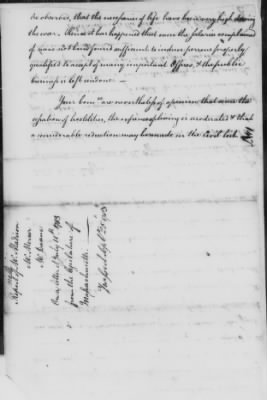 be observed, that the expences of life have been very high during
the war. Hence it has happened that even the salaries complained
of have not been found sufficient to induce persons properly
qualified to accept of many important Offices, & the public
business is left undone —
Your Com.ee are nevertheless of opinion that since the
cessation of hostilities, the expence of living is moderated & that
a considerable reduction may be made in the Civil list.
Report of Mr Madison
Mr
Mr
On a letter of July 11th 1783
from the legislature of
Massachusetts.